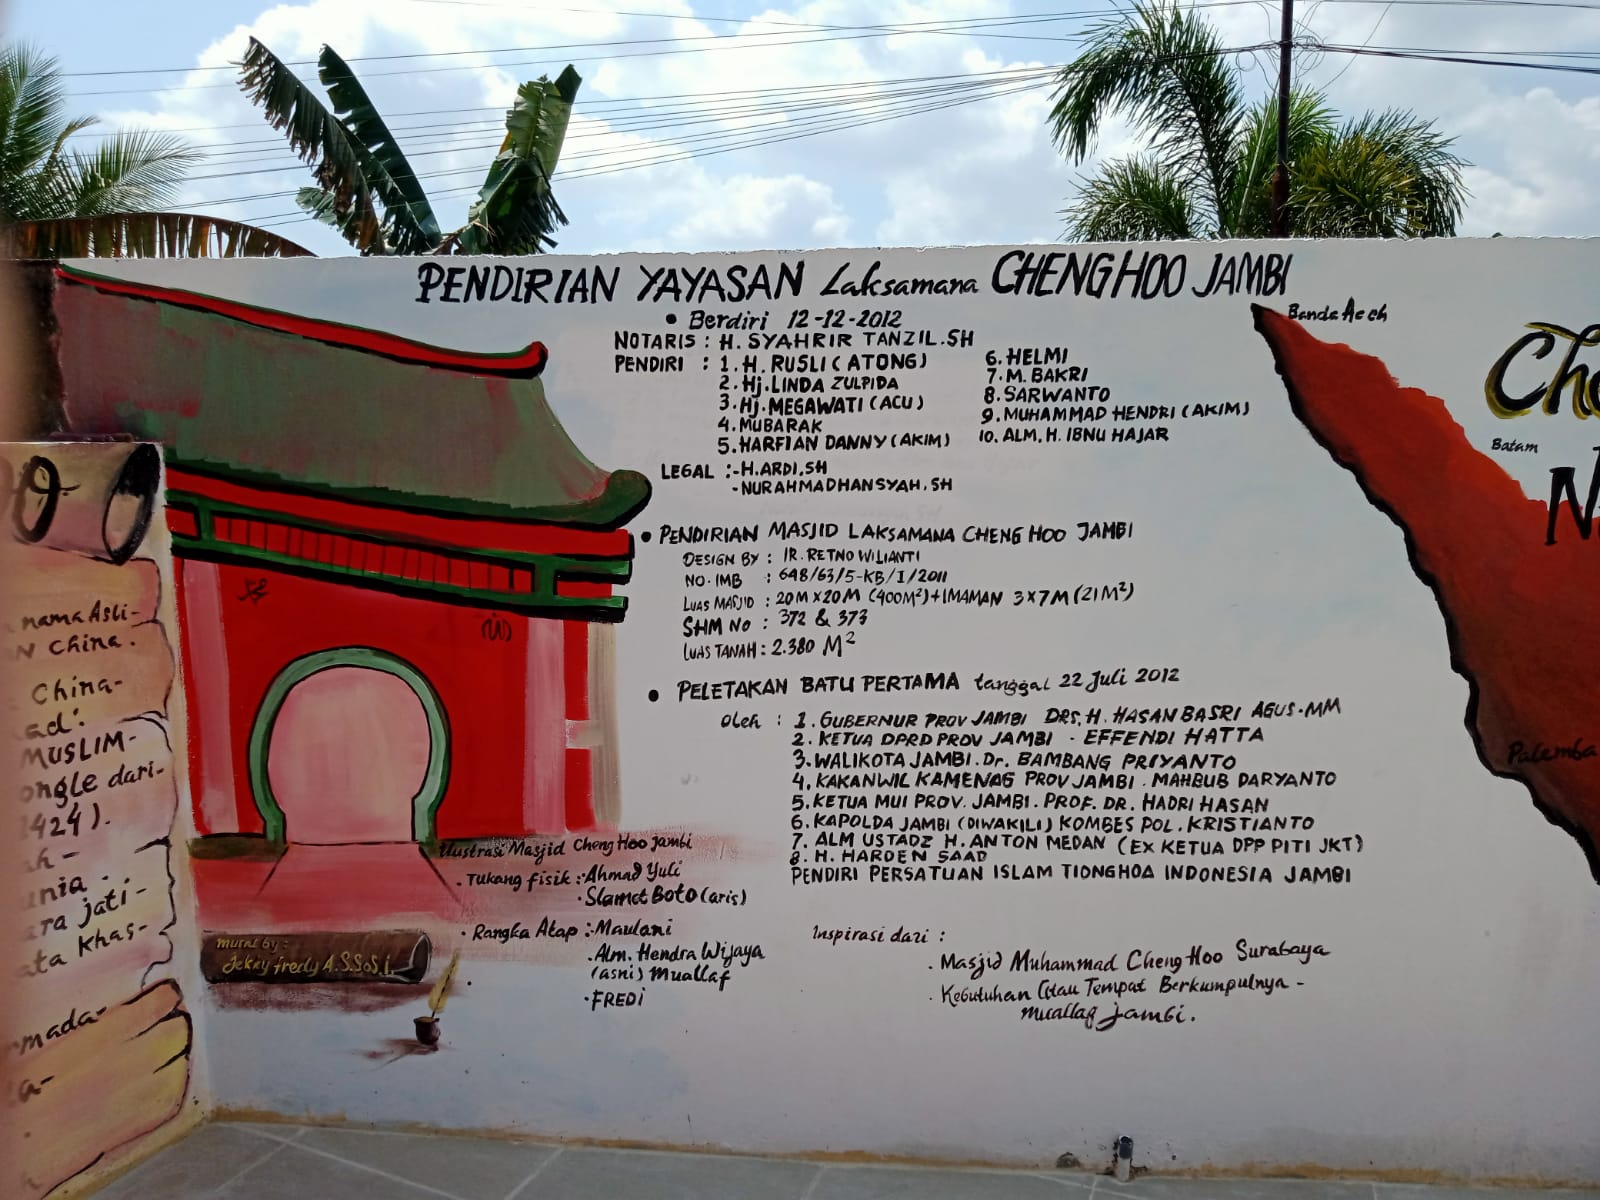 PENDIRIAN YAYASAN Laksamana CHENG HOO JAMBI
• Berdiri 12-12-2012
NOTARIS : H. SYAHRIR TANZIL.SH
PENDIRI : 1. H. RUSLI (ATONG)
2. Hj. LINDA ZULPIDA
3. Hj. MEGAWATI (ACU)
4. MUBARAK
5. HARFIAN DANNY (AKIM)
6. HELMI
7. M. BAKRI
8. SARWANTO
9. MUHAMMAD HENDRI (AKIM)
10. ALM. H. IBNU HAJAR
LEGAL : - H. ARDI, SH
- NURAHMADHANSYAH, SH
• PENDIRIAN MASJID LAKSAMANA CHENG HOO JAMBI
DESIGN BY : IR. RETNO WILIANTI
NO. IMB : 648/63/5-KB/I/2011
LUAS MASJID : 20M X 20M (400M²) + IMAMAN 3 X 7M (21M²)
SHM No : 372 & 373
LUAS TANAH : 2.380 M²
• PELETAKAN BATU PERTAMA tanggal 22 Juli 2012
oleh : 1. GUBERNUR PROV JAMBI DRS. H. HASAN BASRI AGUS.MM
2. KETUA DPRD PROV JAMBI - EFFENDI HATTA
3. WALIKOTA JAMBI. Dr. BAMBANG PRIYANTO
4. KAKANWIL KAMENAG PROV JAMBI. MAHBUB DARYANTO
5. KETUA MUI PROV. JAMBI. PROF. DR. HADRI HASAN
6. KAPOLDA JAMBI (DIWAKILI) KOMBES POL. KRISTIANTO
7. ALM USTADZ H. ANTON MEDAN (EX KETUA DPP PITI JKT)
8. H. HARDEN SAAD
PENDIRI PERSATUAN ISLAM TIONGHOA INDONESIA JAMBI
ilustrasi Masjid Cheng Hoo jambi
. Tukang fisik : . Ahmad Yuli
. Slamet Boto (aris)
. Rangka Atap : . Maulani
. Alm. Hendra Wijaya
(asni) Muallaf
. FREDI
Inspirasi dari :
. Masjid Muhammad Cheng Hoo Surabaya
. Kebutuhan atau Tempat Berkumpulnya -
muallaf jambi.
mural by :
Jekky fredy A.S.SoS.i.
Banda Aceh
Batam
nama Asli-
China.
China-
MUSLIM-
dari-
1424).
jati-
khas-